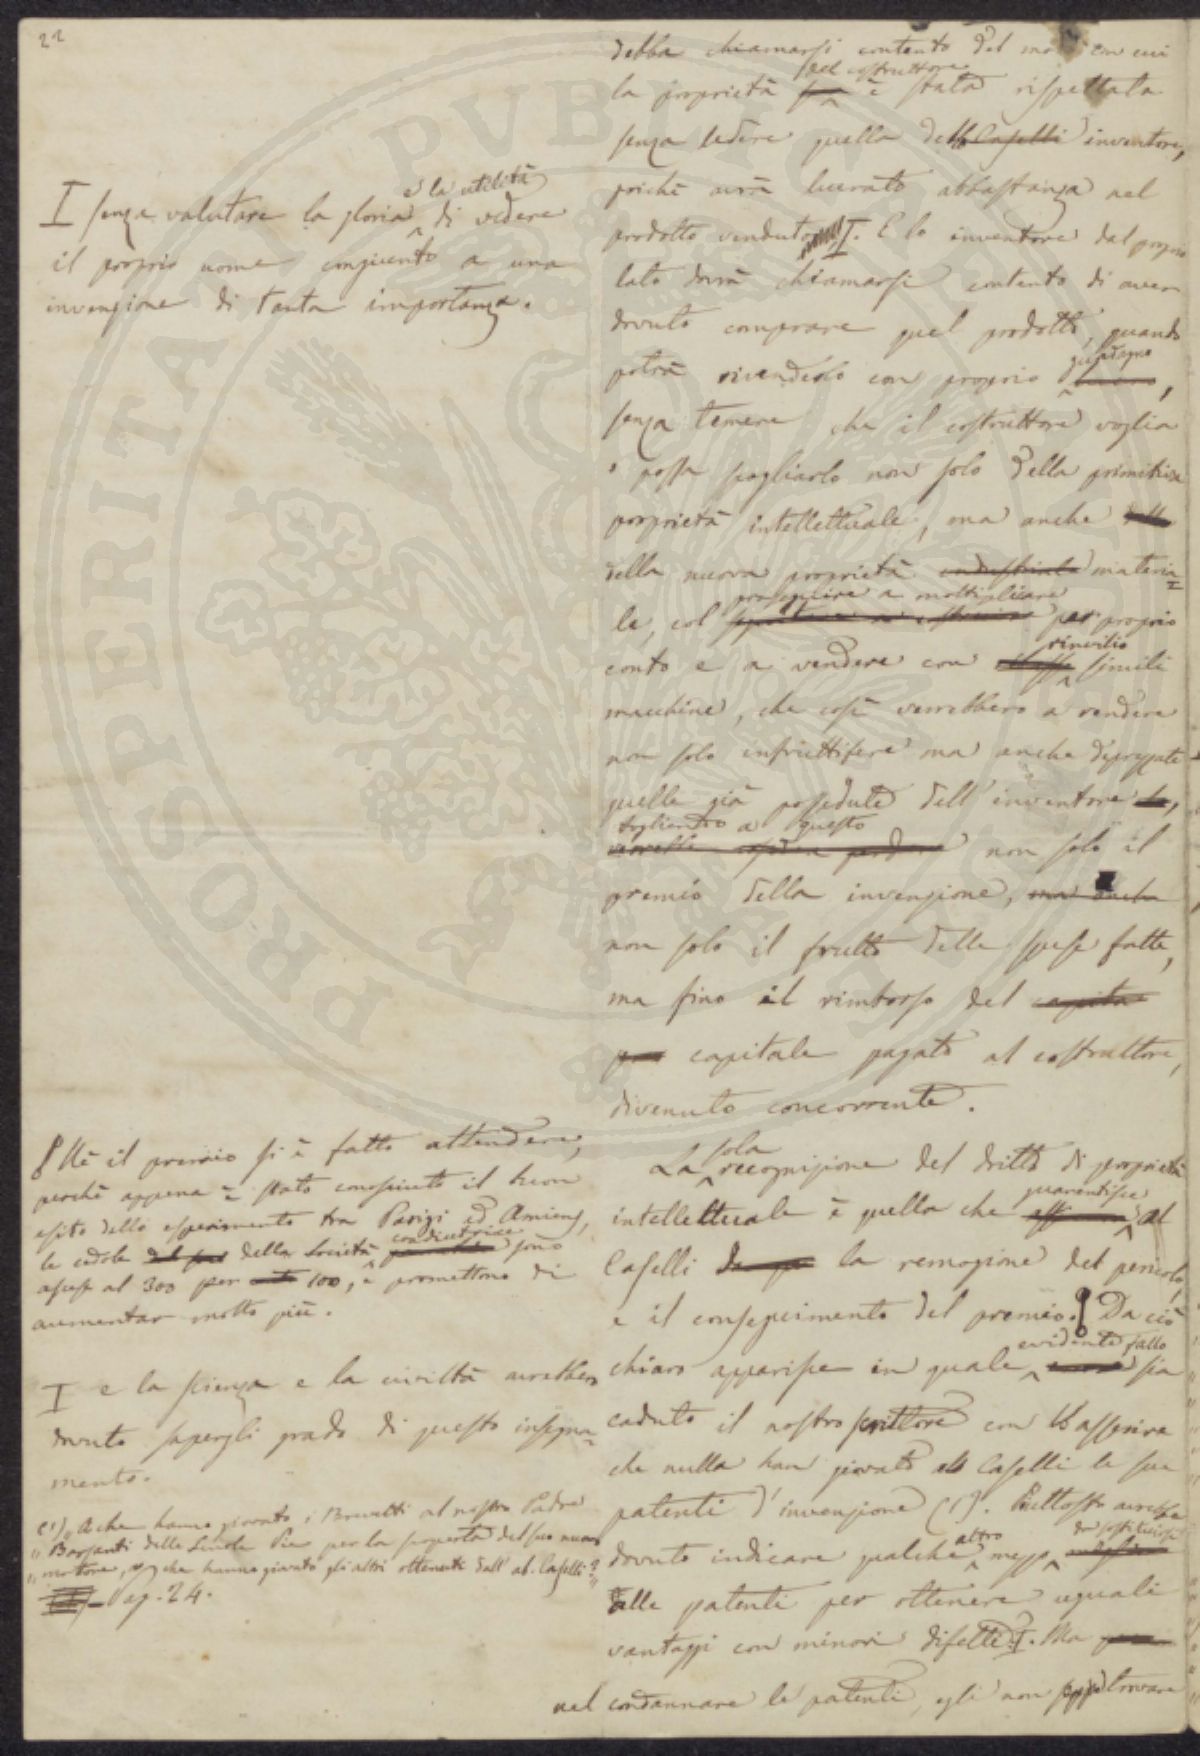 22
I senza valutare la gloria e la utilità di vedere
il proprio nome congiunto a una
invenzione di tanta importanza.
§ Nè il premio si è fatto attendere,
perchè appena è stato conosciuto il buon
esito dello esperimento tra Parigi ed Amiens,
le cedole della Società sono
ascese al 300 per 100, e promettono di
aumentar molto più.
I e la scienza e la civiltà avrebber
dovuto sapergli grado di questo insegna-
mento.
(1) "A che hanno giovato i Brevetti al nostro Padre
" Barsanti delle Scuole Pie per la scoperta del suo nuovo
" motore, che hanno giovato gli altri ottenuti dall'ab. Caselli?"
Pag. 24.
debba chiamarsi contento del modo con cui
la proprietà del costruttore è stata rispettata
senza ledere quella dell' inventore,
poichè avrà lucrato abbastanza nel
prodotto venduto I. E lo inventore dal proprio
lato dovrà chiamarsi contento di aver
dovuto comprare quel prodotto, quando
potrà rivenderlo con proprio guadagno,
senza temere che il costruttore voglia
o possa spogliarlo non solo della primitiva
proprietà intellettuale, ma anche
della nuova proprietà industriale materia-
le, col proseguire a moltiplicare per proprio
conto e a vendere con rinvilio simili
macchine, che così verrebbero a rendere
non solo infruttifere ma anche deprezzate
quelle già possedute dell'inventore,
togliendo a questo non solo il
premio della invenzione, ma anche
non solo il frutto delle spese fatte,
ma fino il rimborso del capitale
capitale pagato al costruttore,
divenuto concorrente.
La sola recognizione del dritto di proprietà
intellettuale è quella che guarentisce al
Caselli la remozione del pericolo,
e il conseguimento del premio. § Da ciò
chiaro apparisce in quale evidente fallo sia
caduto il nostro scrittore con l'asserire
che nulla han giovato al Caselli le sue
patenti d'invenzione (1). Piuttosto avrebbe
dovuto indicare qualche altro mezzo da sostituirsi
alle patenti per ottenere uguali
vantaggi con minori difetti I. Ma
nel condannare le patenti, egli non trovare